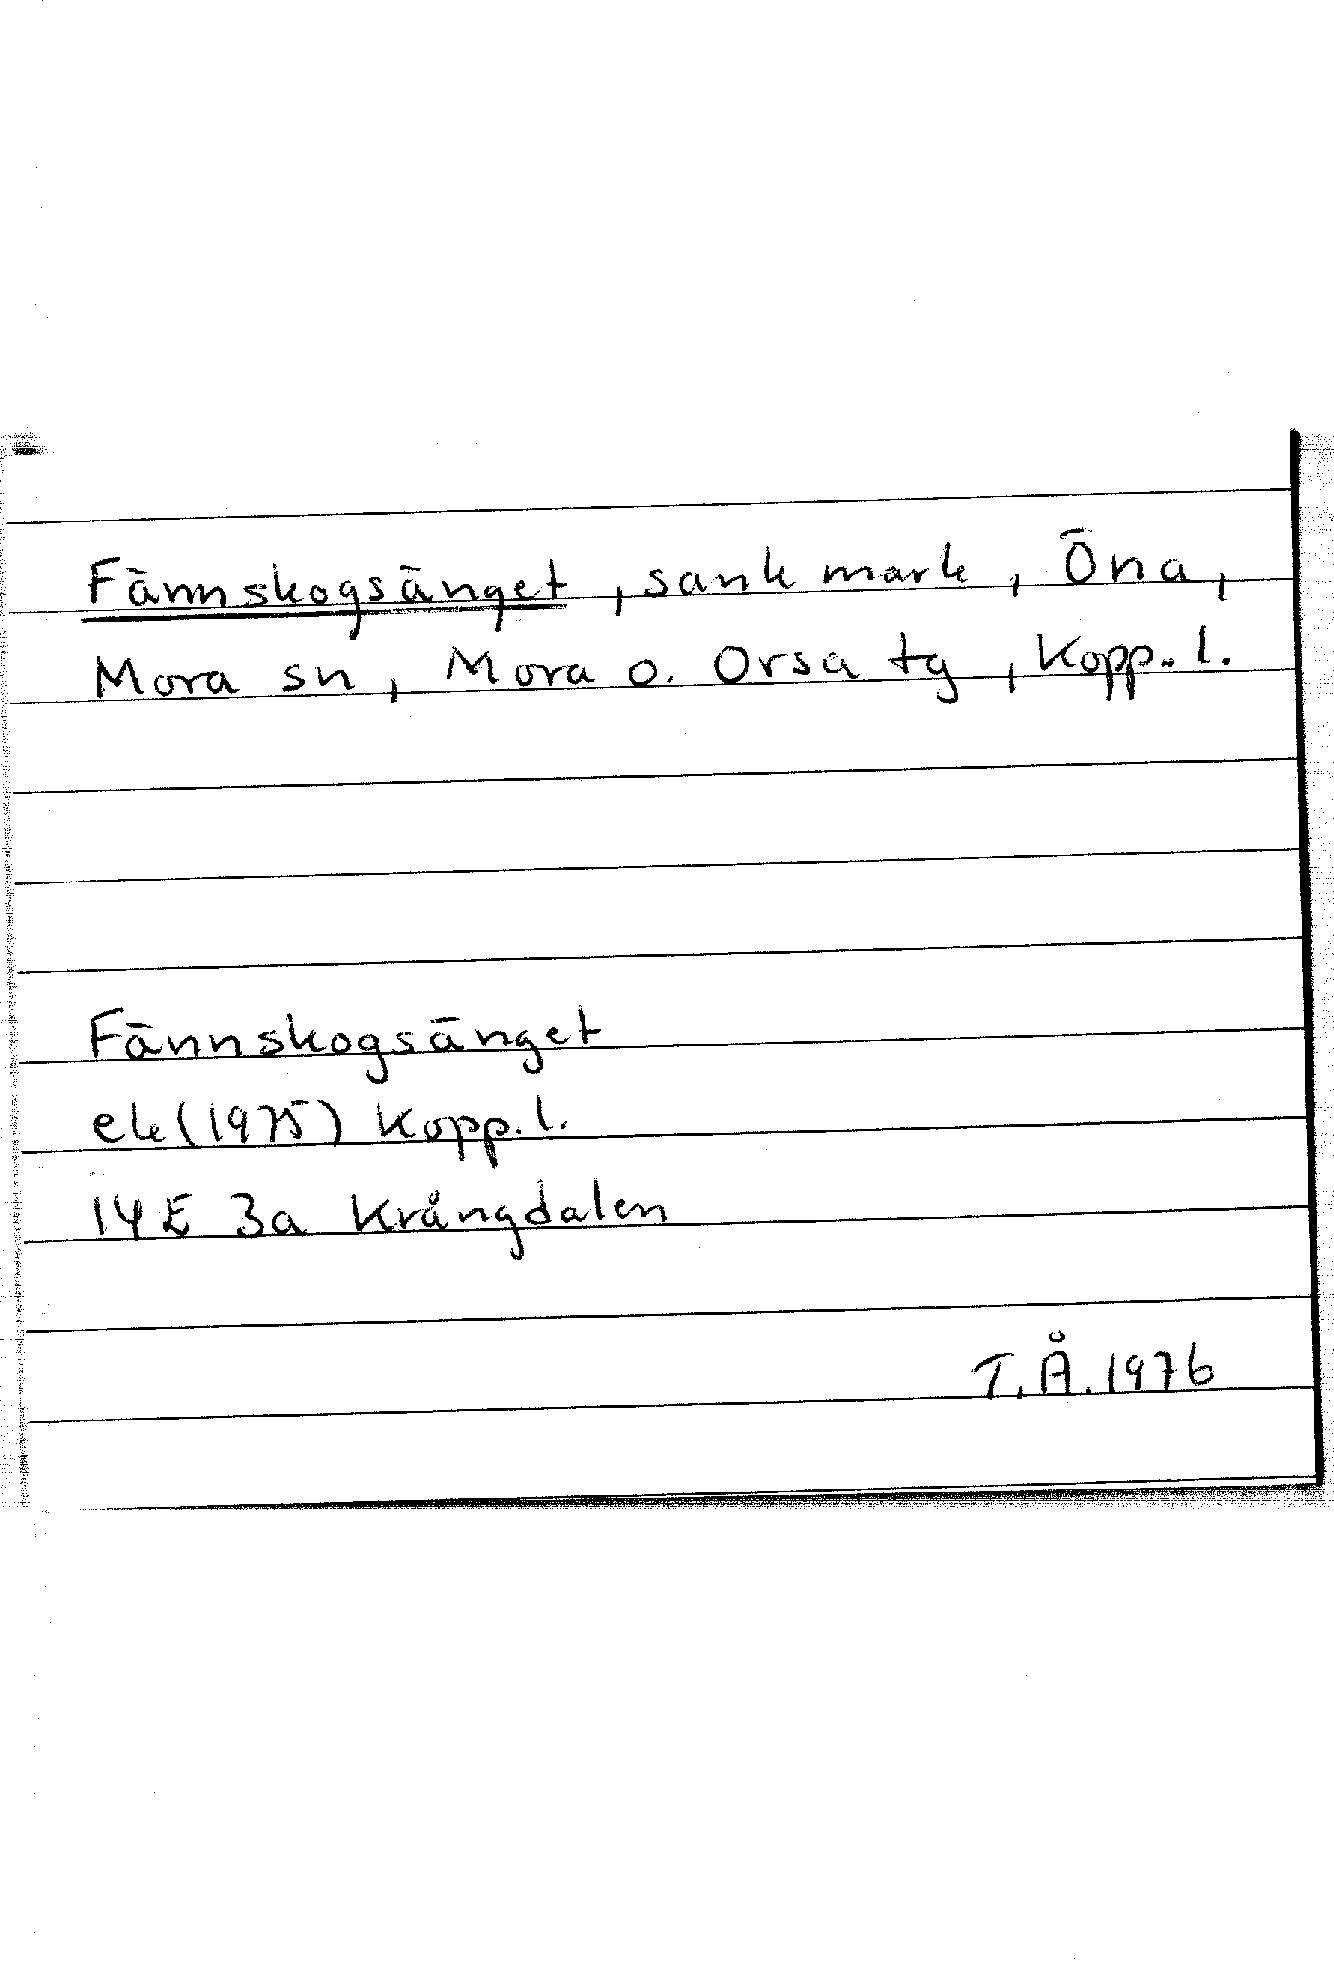 Fännskogsänget, sank mark, Öna,
Mora sn, Mora o. Orsa tg, Kopp. l.
Fännskogsänget
ek (1975) Kopp. l.
14E 3a Krångdalen
T.Å. 1976